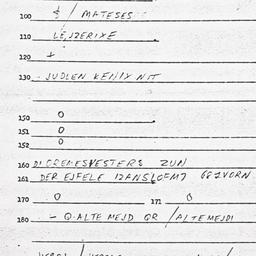 100 / MATESES
110 LEJZERIXE
120 +
130 - JUDLEN KENIX NIT
150 0
151 0
152 0
160 DI CREMESVESTERS ZUN
161 DER EJFELE
170 0 171 0
180 - Q-ALTE MEJD QR /ALTEMEJDI